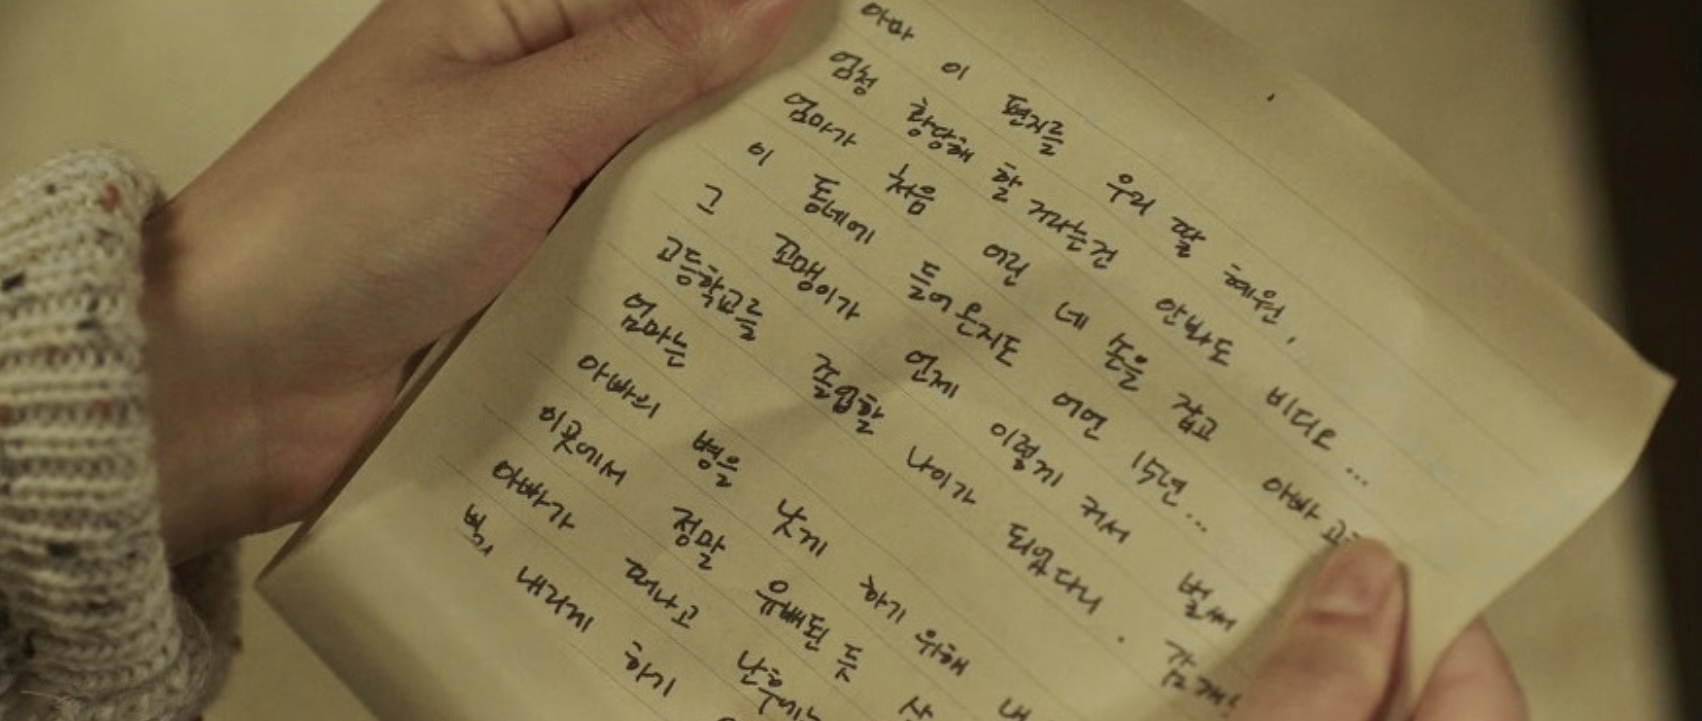 아마 이 편지를 우리 딸 혜원,
엄청 황당해 할 거라는건 안봐도 비디오...
엄마가 처음 어린 네 손을 잡고 아빠
이 동네에 들어온지도 어언 15년...
그 꼬맹이가 언제 이렇게 커서 벌써
고등학교를 졸업할 나이가 되었다니. 감개
엄마는
아빠의 병을 낫게 하기 위해
이곳에서 정말 유배된 듯
아빠가 떠나고 난 후에는
내리게 하기